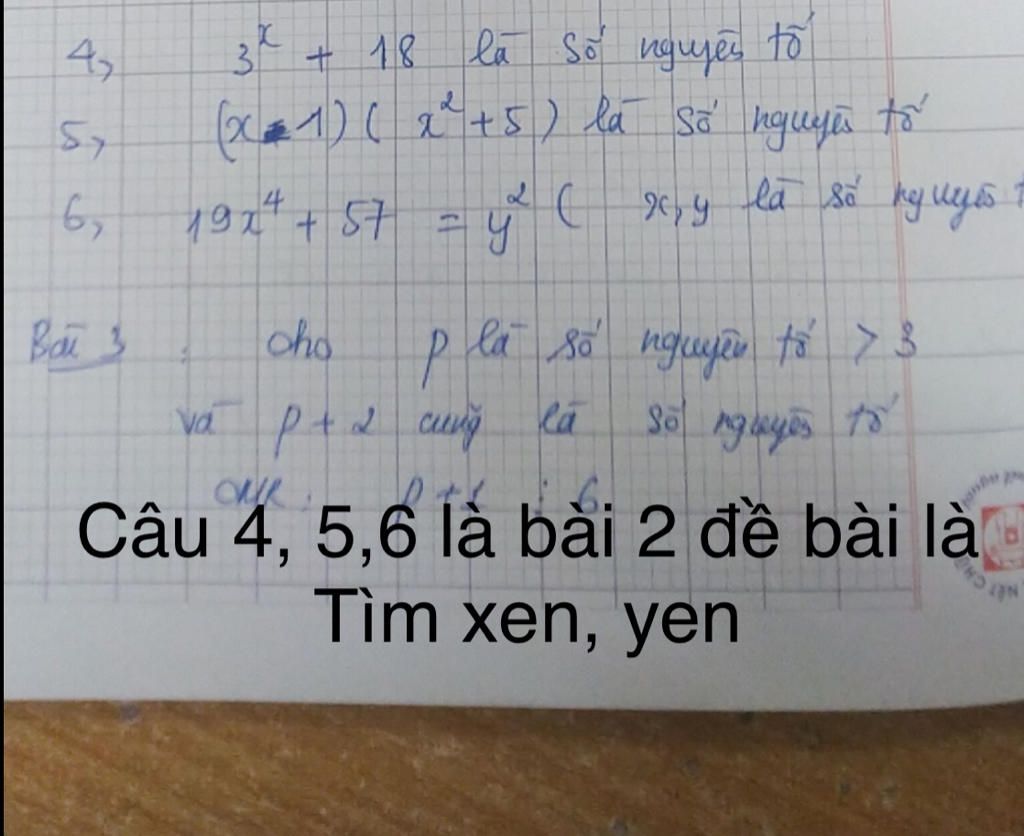 4, 3^x + 18 là số nguyên tố
5, (x - 1) ( x² + 5 ) là số nguyên tố
6, 19x⁴ + 57 = y² ( x, y là số nguyên t
Bài 3 : cho p là số nguyên tố > 3
và p + 2 cũng là số nguyên tố
CMR : p + 1 ⋮ 6
Câu 4, 5,6 là bài 2 đề bài là
Tìm xen, yen